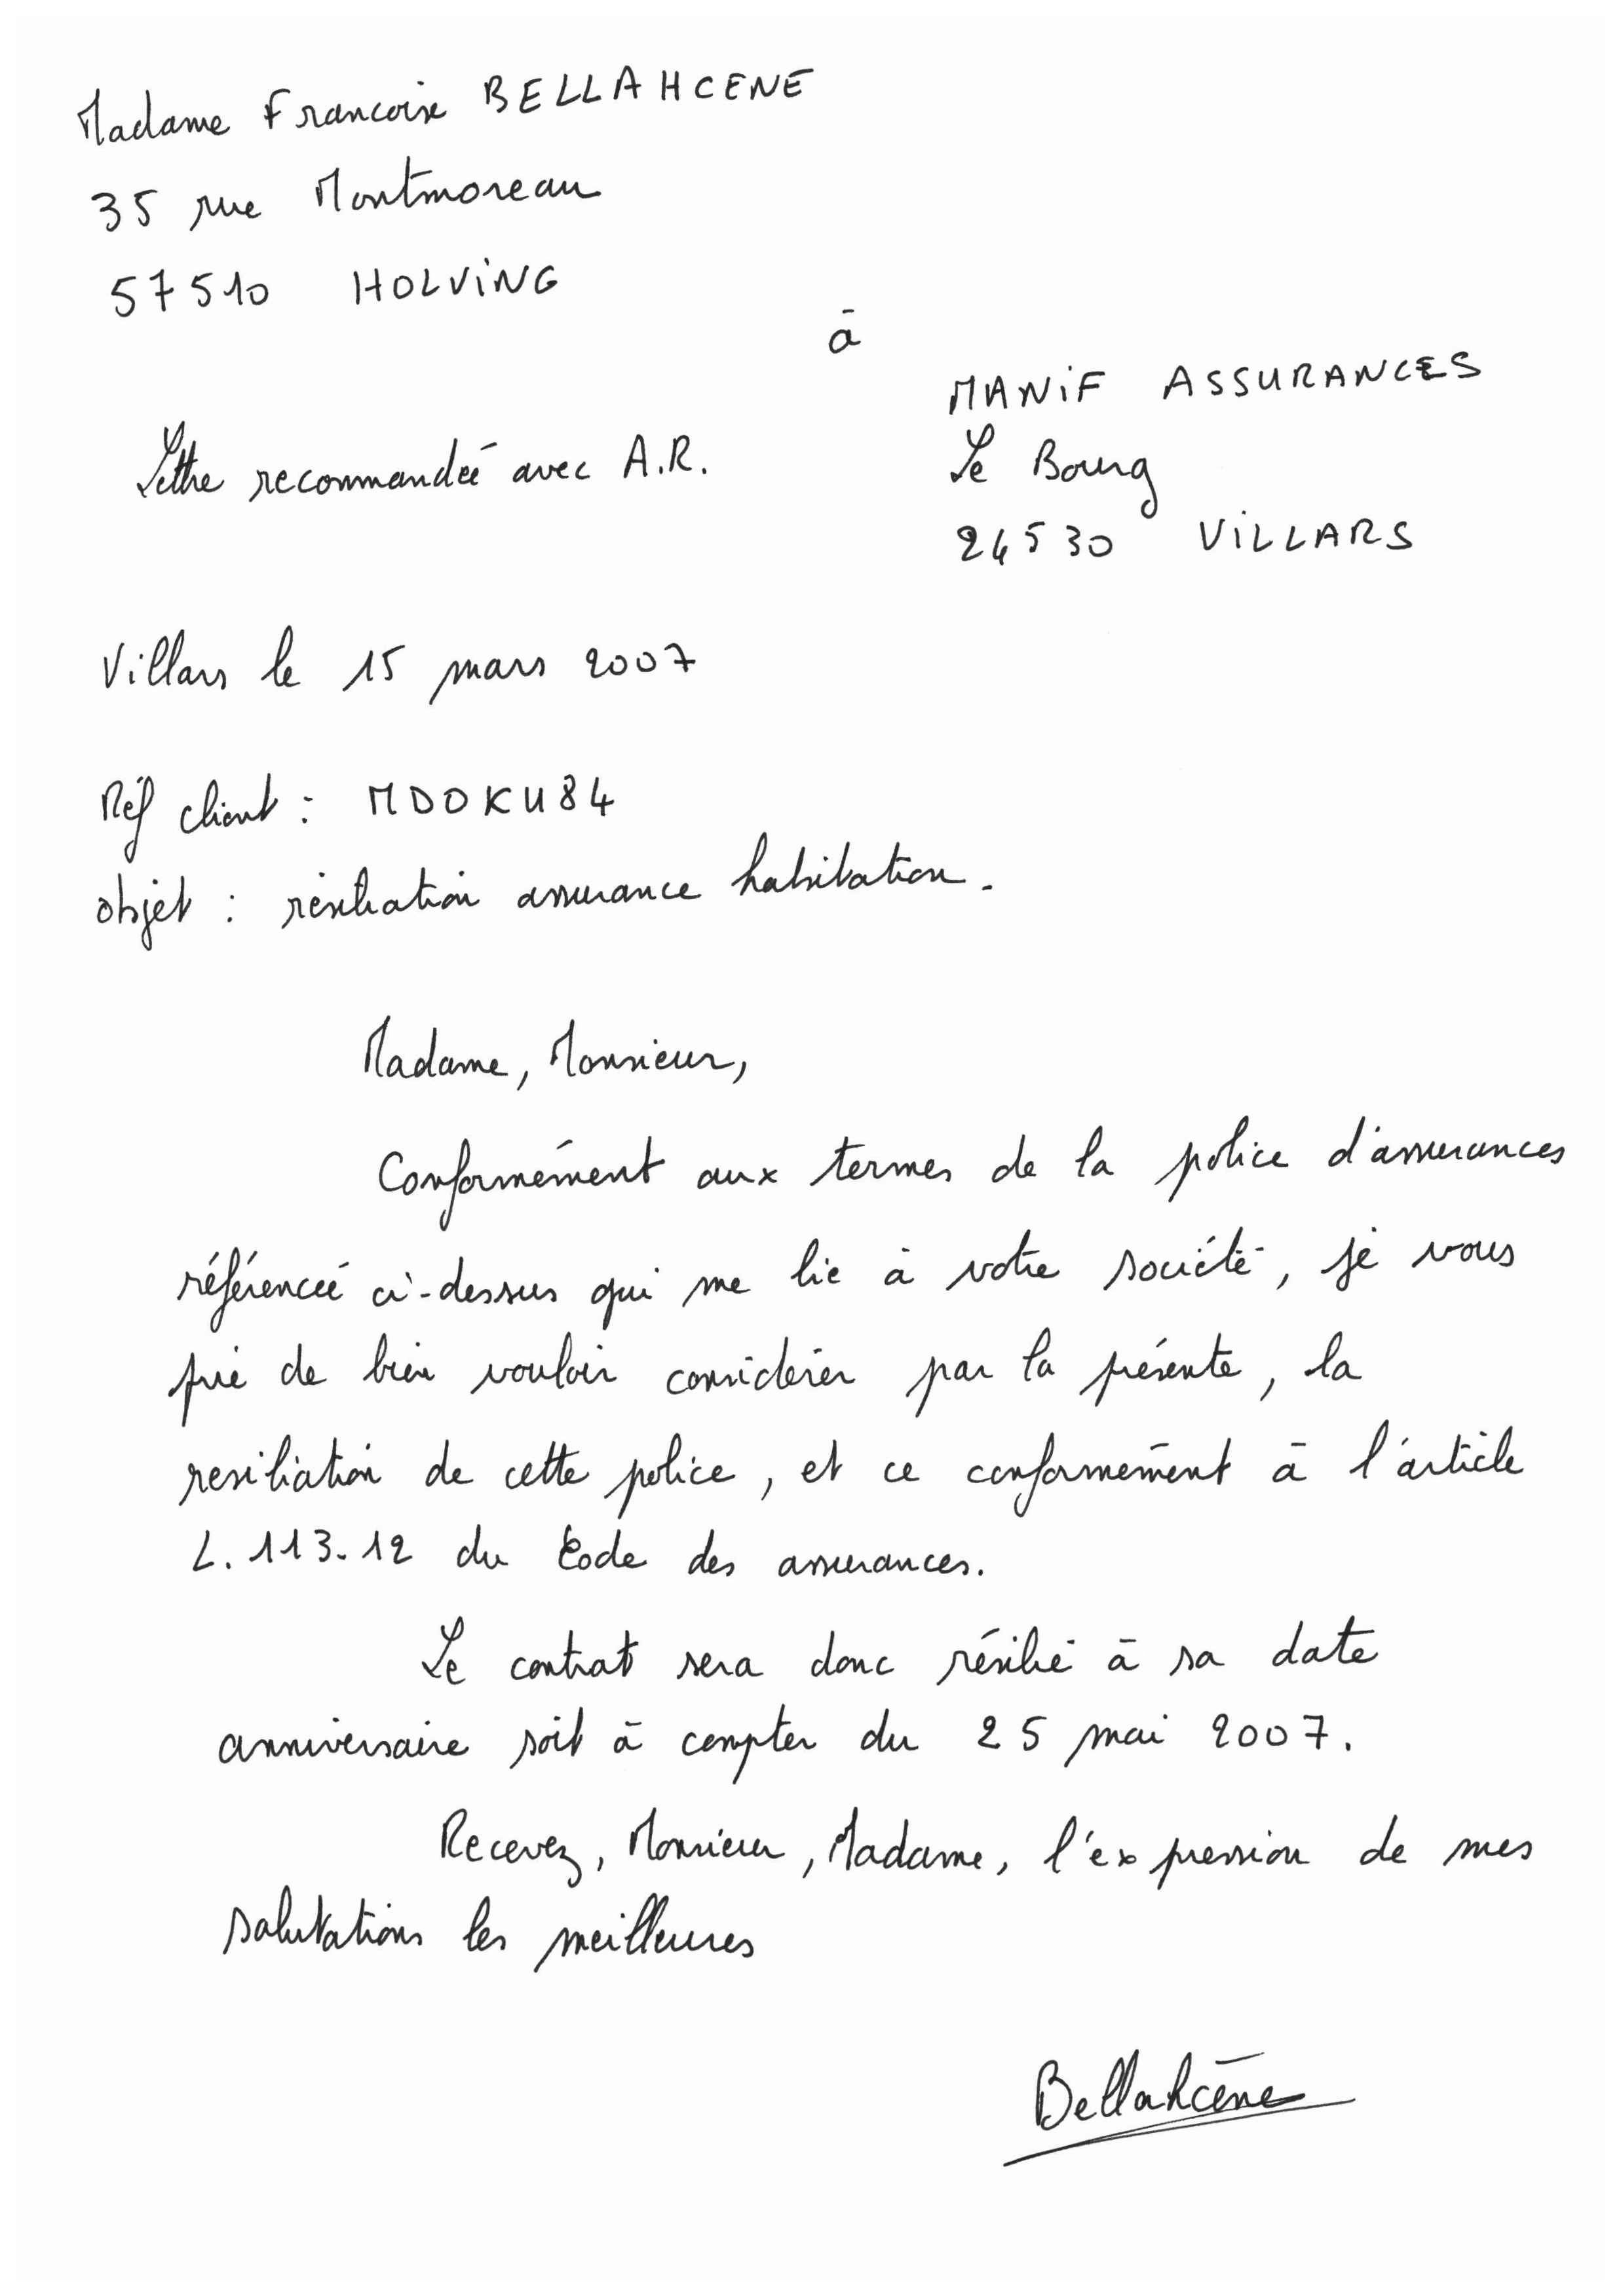 Madame Francoise BELLAHCENE
35 rue Montmoreau
57510 HOLVING
à
MANIF ASSURANCES
Lettre recommandée avec A.R.
Le Bourg
24530 VILLARS
Villars le 15 mars 2007
Réf client : MDOKU84
objet : résiliation assurance habitation.
Madame, Monsieur,
Conformément aux termes de la police d'assurances
référencée ci-dessus qui me lie à votre société, je vous
prie de bien vouloir considérer par la présente, la
resiliation de cette police, et ce conformément à l'article
L.113-12 du Code des assurances.
Le contrat sera donc résilié à sa date
anniversaire soit à compter du 25 mai 2007.
Recevez, Monsieur, Madame, l'expression de mes
salutations les meilleures
Bellahcène